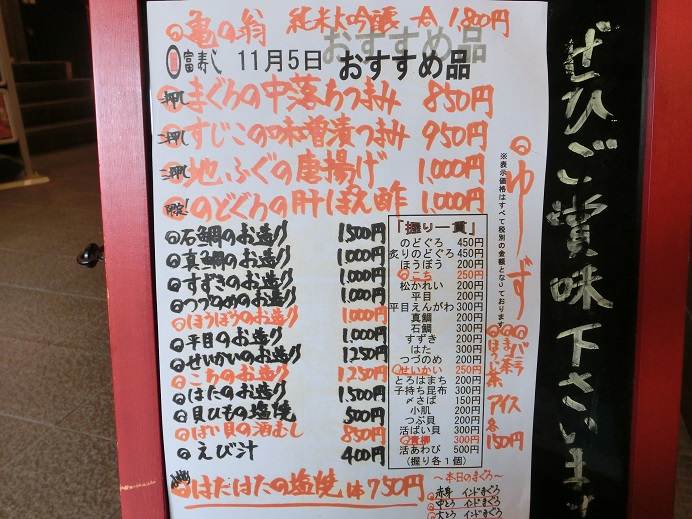 亀の翁 純米大吟醸 一合 1,800円
富寿し 11月5日 おすすめ品
押し! まぐろの中落ちつまみ 850円
押し! すじこの味噌漬つまみ 950円
押し! 地ふぐの唐揚げ 1,000円
限定! のどぐろの肝ぽん酢 1,000円
石鯛のお造り 1,500円
真鯛のお造り 1,000円
すずきのお造り 1,000円
つづのめのお造り 1,000円
ほうぼうのお造り 1,000円
平目のお造り 1,000円
せいかいのお造り 1,250円
こちのお造り 1,250円
はたのお造り 1,500円
貝ひもの塩焼 500円
ばい貝の酒むし 850円
えび汁 400円
はたはたの塩焼 1本 750円
「握り一貫」
のどぐろ 450円
炙りのどぐろ 450円
ほうぼう 200円
こち 250円
松かれい 200円
平目 200円
平目えんがわ 300円
真鯛 200円
石鯛 300円
すずき 200円
はた 300円
つづのめ 200円
せいかい 250円
とろはまち 200円
子持ち昆布 300円
〆さば 150円
小肌 200円
つぶ貝 200円
活ばい貝 300円
青柳 300円
活あわび 500円
(握り各1個)
※表示価格はすべて税別の金額となっております
ゆず
バニラ
抹茶
ほうじ茶
アイス
各
150円
~本日のまぐろ~
赤身 インドまぐろ
中とろ インドまぐろ
大とろ インドまぐろ
ぜひご賞味下さいませ